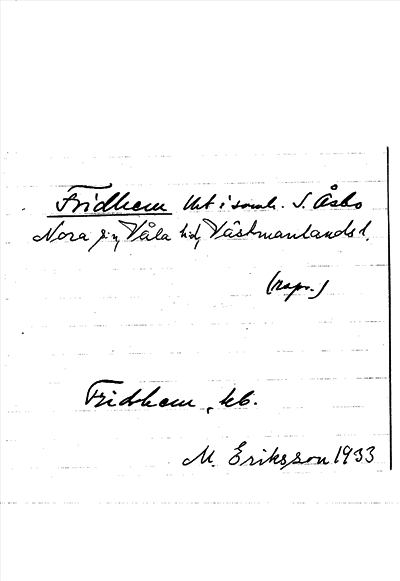 Fridhem Utt i samh. S. Åsbo
Nora sn, Våla hd, Västmanlands l.
(rapr.)
Fridhem, kb.
M. Eriksson 1933